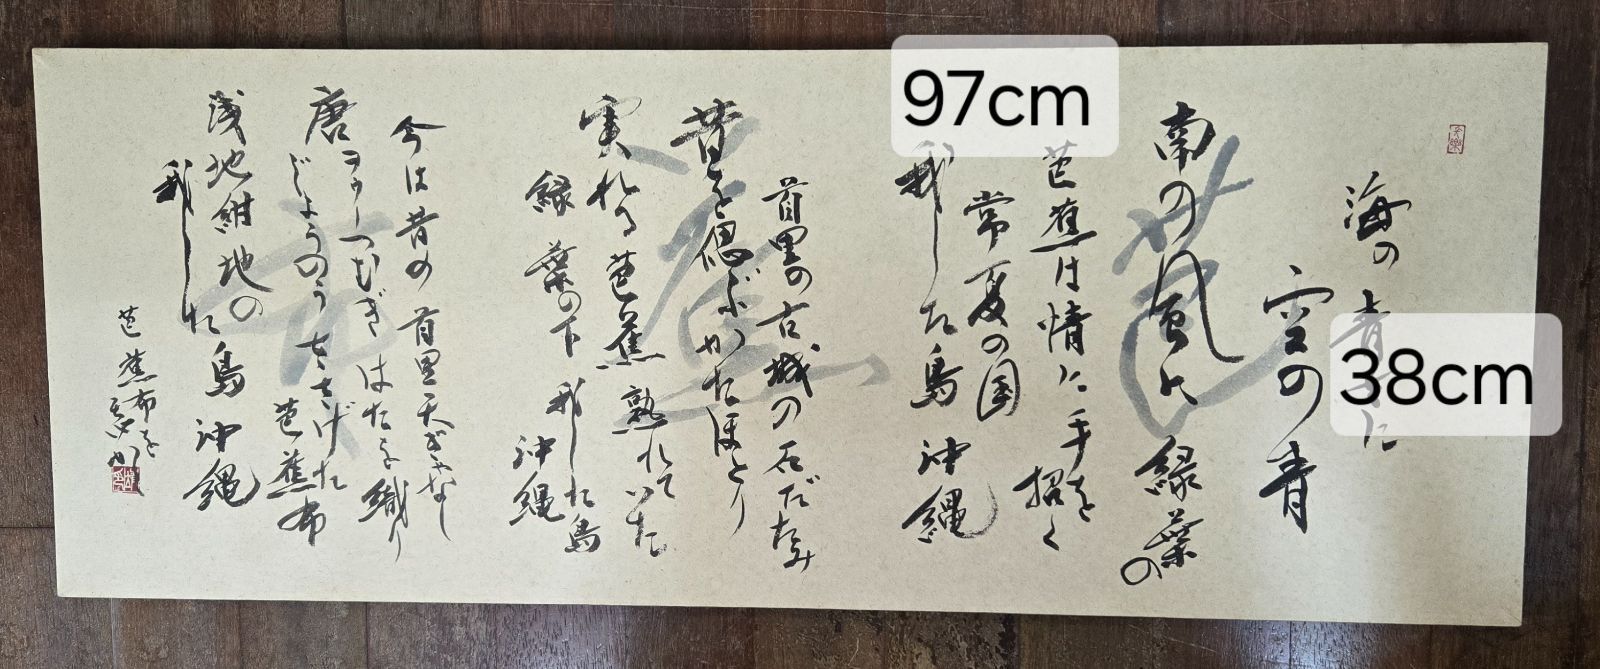 海の青さに
空の青
南の風に緑葉の
芭蕉は情に手を招く
常夏の国
我した島沖縄
首里の古城の石だたみ
昔を偲ぶかたほとり
実れる芭蕉熟れていた
緑葉の下我した島
沖縄
今は昔の首里天ぎゃなし
唐ヲゥーつむぎはたを織り
じょうのうささげた
芭蕉布
浅地紺地の
我した島沖縄
芭蕉布を
芭蕉布
97cm
38cm